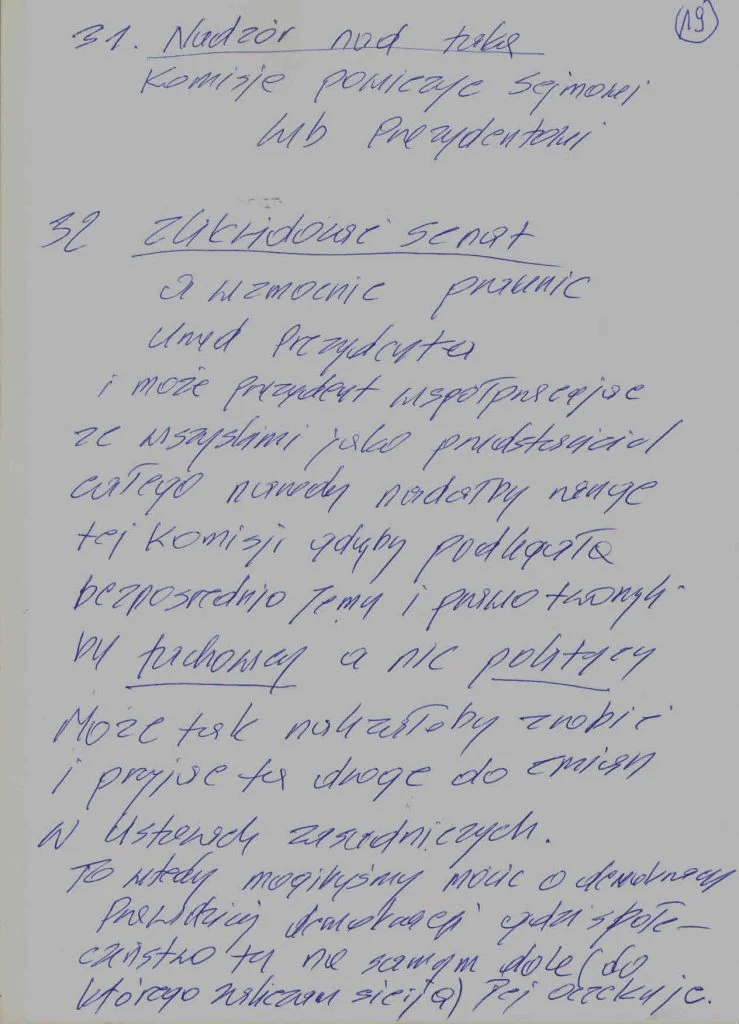 19
31. Nadzór nad taką
Komisje powiczyc Sejmowi
lub Prezydentowi
32 Zlikwidować Senat
a wzmocnic prawnie
Urząd Prezydenta
i może prezydent współpracując
ze wszystkimi jako przedstawiciel
całego narodu nadałby rangę
tej Komisji gdyby podlegała
bezpośrednio Jemu i prawo tworzyli-
by fachowcy a nie politycy
Może tak należałoby zrobić
i przyjąc tą drogę do zmian
w Ustawach zasadniczych.
To wtedy moglibyśmy mówic o demokracji
Prawdziwej demokracji gdzi społe-
czeństwo tu na samym dole (do
którego zaliczam się i ja) Jej oczekuje.